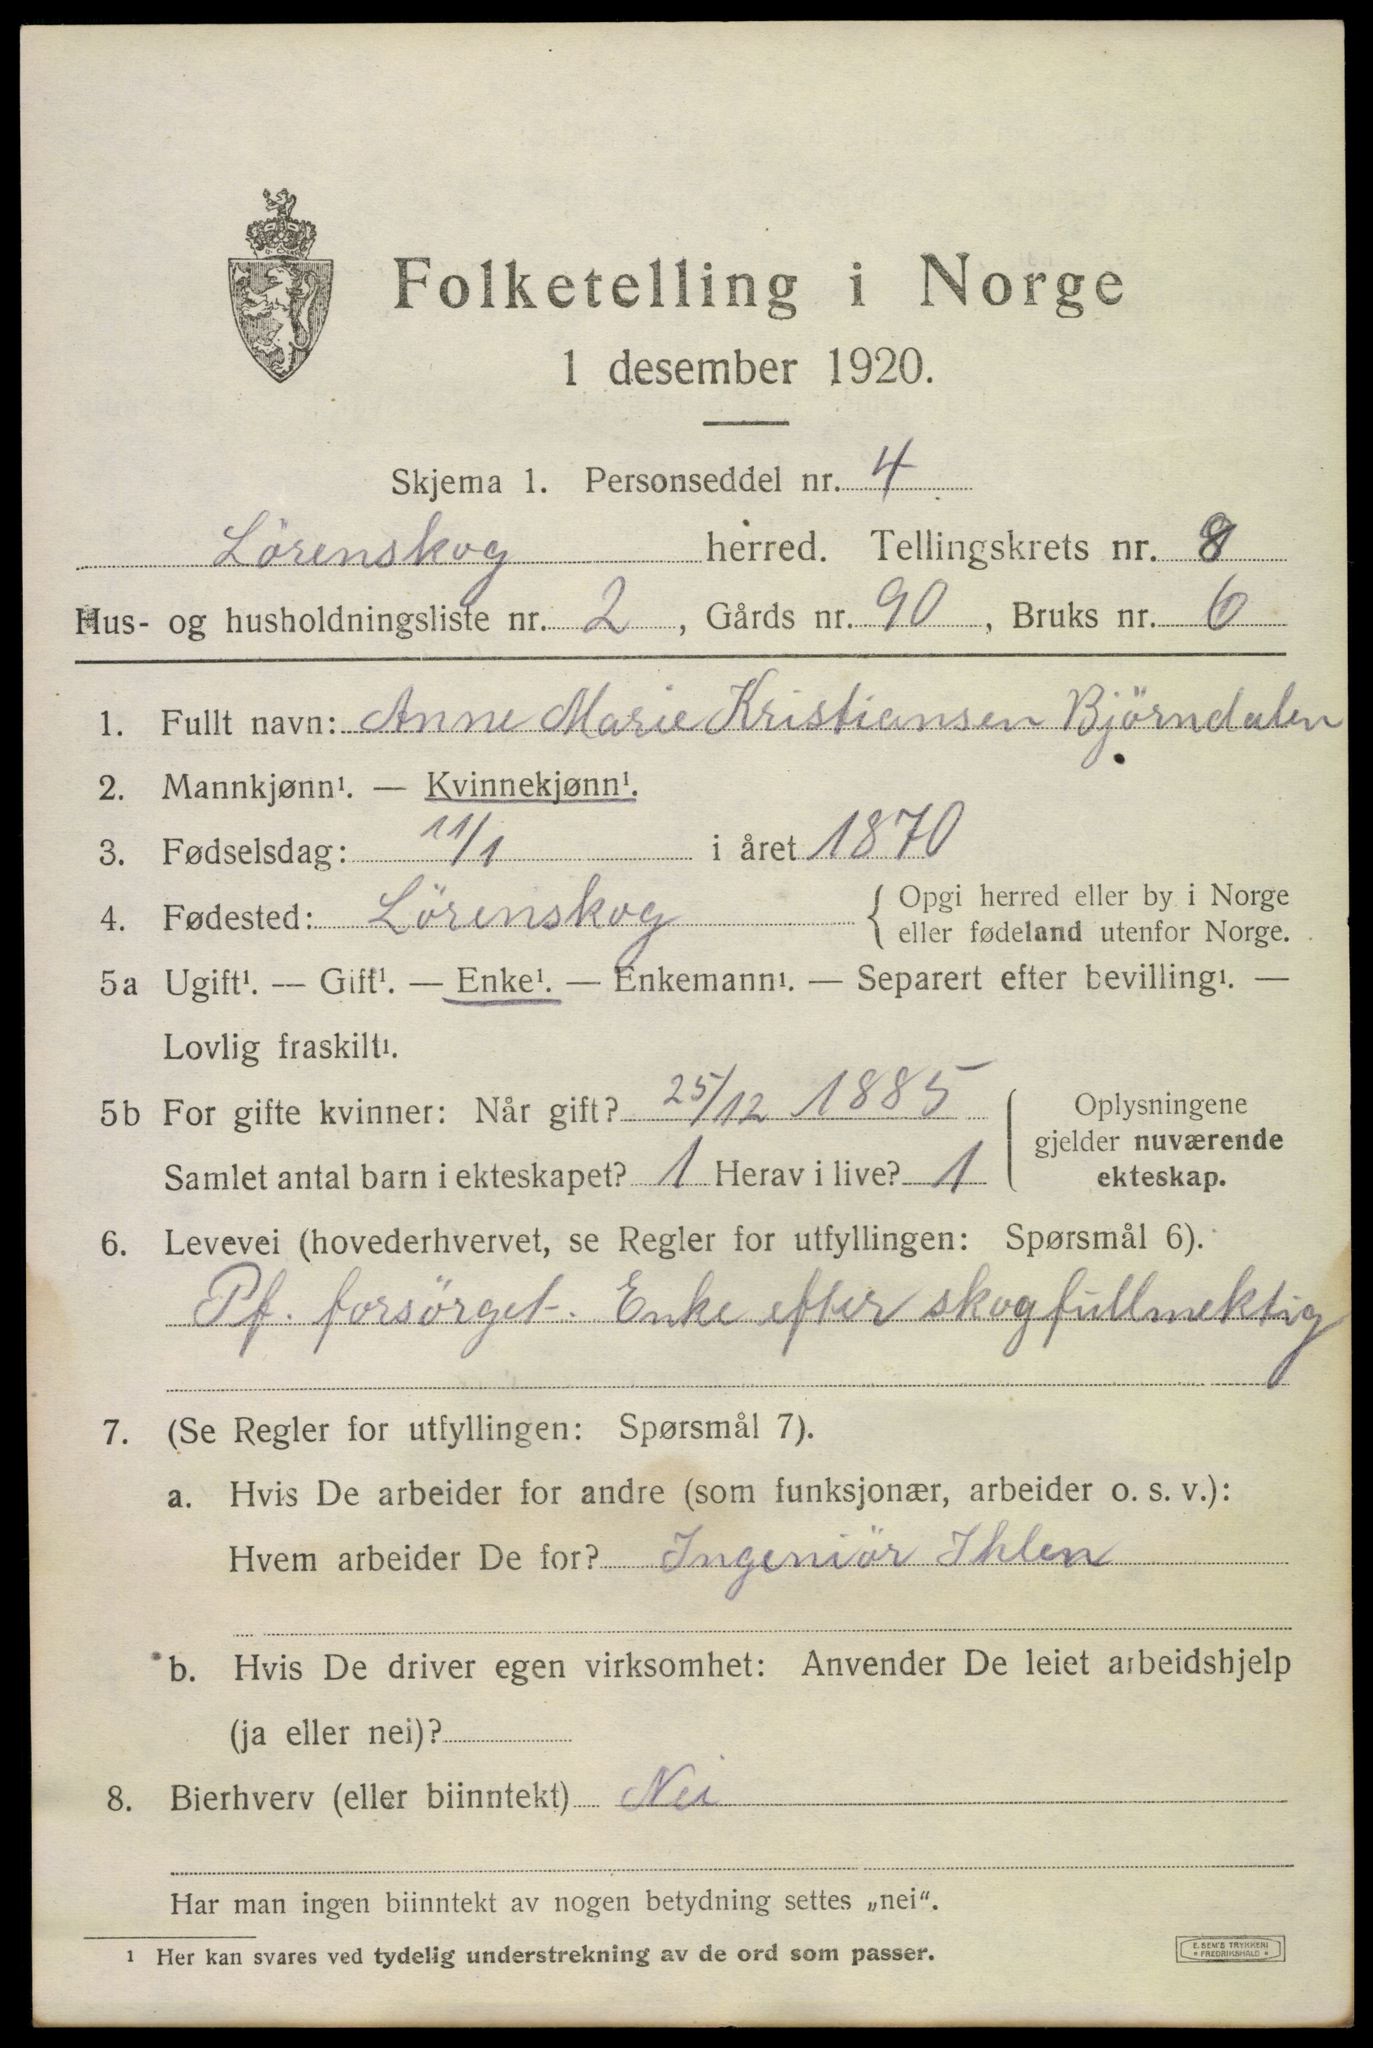 Folketelling i Norge
1 desember 1920.
Skjema 1. Personseddel nr. 4
Lörenskog herred. Tellingskrets nr. 8
Hus- og husholdningsliste nr. 2, Gårds nr. 90, Bruks nr. 6
1. Fullt navn: Anne Marie Kristiansen Björndalen
2. Mannkjønn¹. — Kvinnekjønn¹.
3. Fødselsdag: 11/1 i året 1870
4. Fødested: Lörenskog { Opgi herred eller by i Norge
eller fødeland utenfor Norge.
5a Ugift¹. — Gift¹. — Enke¹. — Enkemann¹. — Separert efter bevilling¹. —
Lovlig fraskilt¹.
5b For gifte kvinner: Når gift? 25/12 1885
Samlet antal barn i ekteskapet? 1 Herav i live? 1
Oplysningene
gjelder nuværende
ekteskap.
6. Levevei (hovederhvervet, se Regler for utfyllingen: Spørsmål 6).
Pf. forsörget. Enke efter skogfullmektig
7. (Se Regler for utfyllingen: Spørsmål 7).
a. Hvis De arbeider for andre (som funksjonær, arbeider o. s. v.):
Hvem arbeider De for? Ingeniör Ihlen
b. Hvis De driver egen virksomhet: Anvender De leiet arbeidshjelp
(ja eller nei)?
8. Bierhverv (eller biinntekt) Nei
Har man ingen biinntekt av nogen betydning settes „nei“.
¹ Her kan svares ved tydelig understrekning av de ord som passer.
E. SEM'S TRYKKERI
FREDRIKSHALD